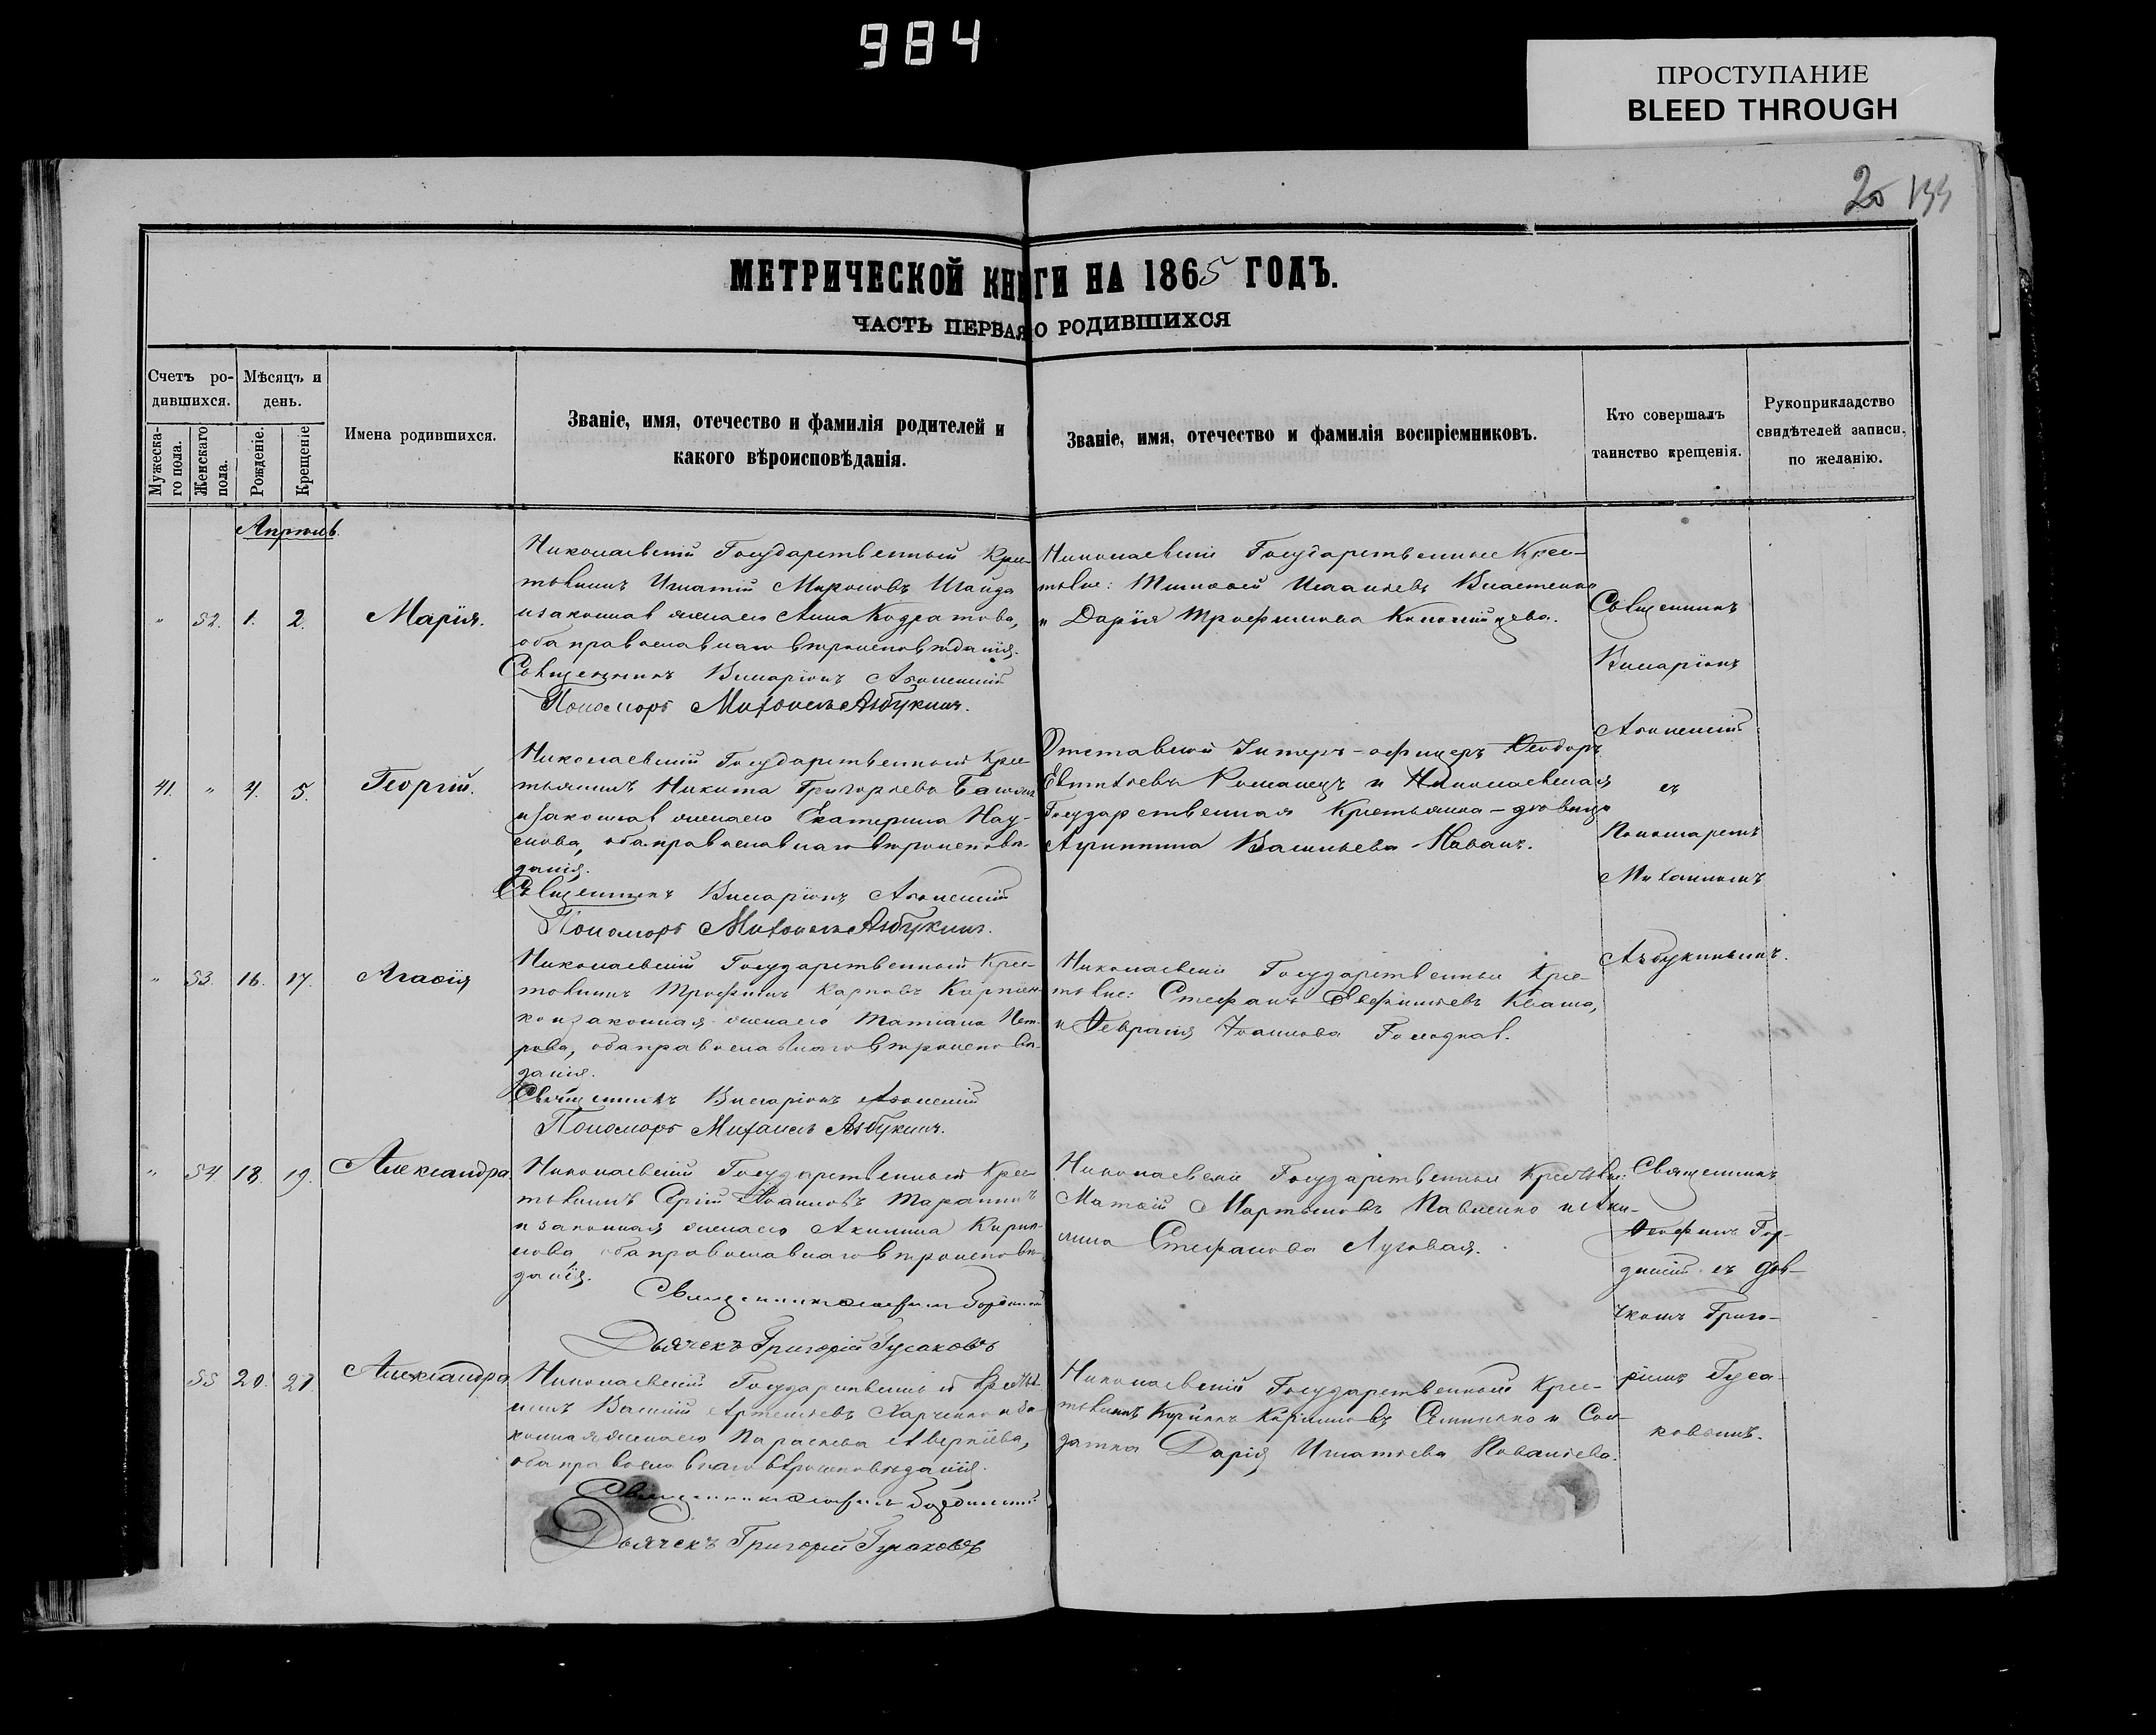 984
ПРОСТУПАНИЕ
BLEED THROUGH
20 133
МЕТРИЧЕСКОЙ КНИГИ НА 1865 ГОДЪ.
ЧАСТЬ ПЕРВАЯ О РОДИВШИХСЯ
Счетъ ро-
дившихся.
Мужеска-
го пола.
Женскаго
пола.
Мѣсяцъ и
день.
Рожденіе.
Крещеніе
Имена родившихся.
Званіе, имя, отечество и фамилія родителей и
какого вѣроисповѣданія.
Званіе, имя, отечество и фамилія воспріемниковъ.
Кто совершалъ
таинство крещенія.
Рукоприкладство
свидѣтелей записи,
по желанію.
Апрѣль.
" 52. 1. 2. Марія.
Николаевскій Государственный Крес-
тьянинъ Игнатій Мироновъ Шайда
и законная жена его Анна Кодратова,
оба православнаго вѣроисповѣданія.
Священникъ Виларіонъ
Пономаръ Михаилъ Азбукинъ.
Николаевскіе Государственные Крес-
тьяне: Тимофей
и Дарія Трофимова
41. " 4. 5. Георгій.
Николаевскій Государственный Крес-
тьянинъ Никита Григорьевъ
и законная жена его Екатерина Нау-
мова, оба православнаго вѣроисповѣ-
данія.
Священникъ Виларіонъ
Пономаръ Михаилъ Азбукинъ.
Отставной Унтеръ-офицеръ Ѳеодоръ
Романецъ и Николаевская
Государственная Крестьянка-дѣвица
Агриппина Васильева
" 53. 16. 17. Агафія
Николаевскій Государственный Крес-
тьянинъ Трофимъ Карповъ Карпен-
ко и законная жена его Татіана Пет-
рова, оба православнаго вѣроисповѣ-
данія.
Священникъ Виларіонъ
Пономаръ Михаилъ Азбукинъ.
Николаевскіе Государственные Крес-
тьяне: Стефанъ Кваша,
и Февронія Іоаннова Голодная.
Священникъ
Виларіонъ
съ
Пономаремъ
Михаиломъ
Азбукинымъ.
" 54. 18. 19. Александра
Николаевскій Государственный Крес-
тьянинъ Сергій Іоанновъ Таранникъ
и законная жена его Акилина Кирил-
лова, оба православнаго вѣроисповѣ-
данія.
Священникъ
Дьячекъ Григорій Гусаковъ
Николаевскіе Государственные Крестьяне:
Матѳій Мартыновъ Павленко и Аки-
лина Стефанова Луговая.
55 20. 21. Александра
Николаевскій Государственный Кресть-
янинъ Василій Артемьевъ Харченко и за-
конная жена его Параскева Аверкіева,
оба православнаго вѣроисповѣданія.
Священникъ
Дьячекъ Григорій Гусаковъ
Николаевскій Государственный Крес-
тьянинъ Кирилъ и Сол-
датка Дарія Игнатьева
Священникъ
Ѳеофилъ Гор-
съ Дья-
чкомъ Григо-
ріемъ Гуса-
ковымъ.